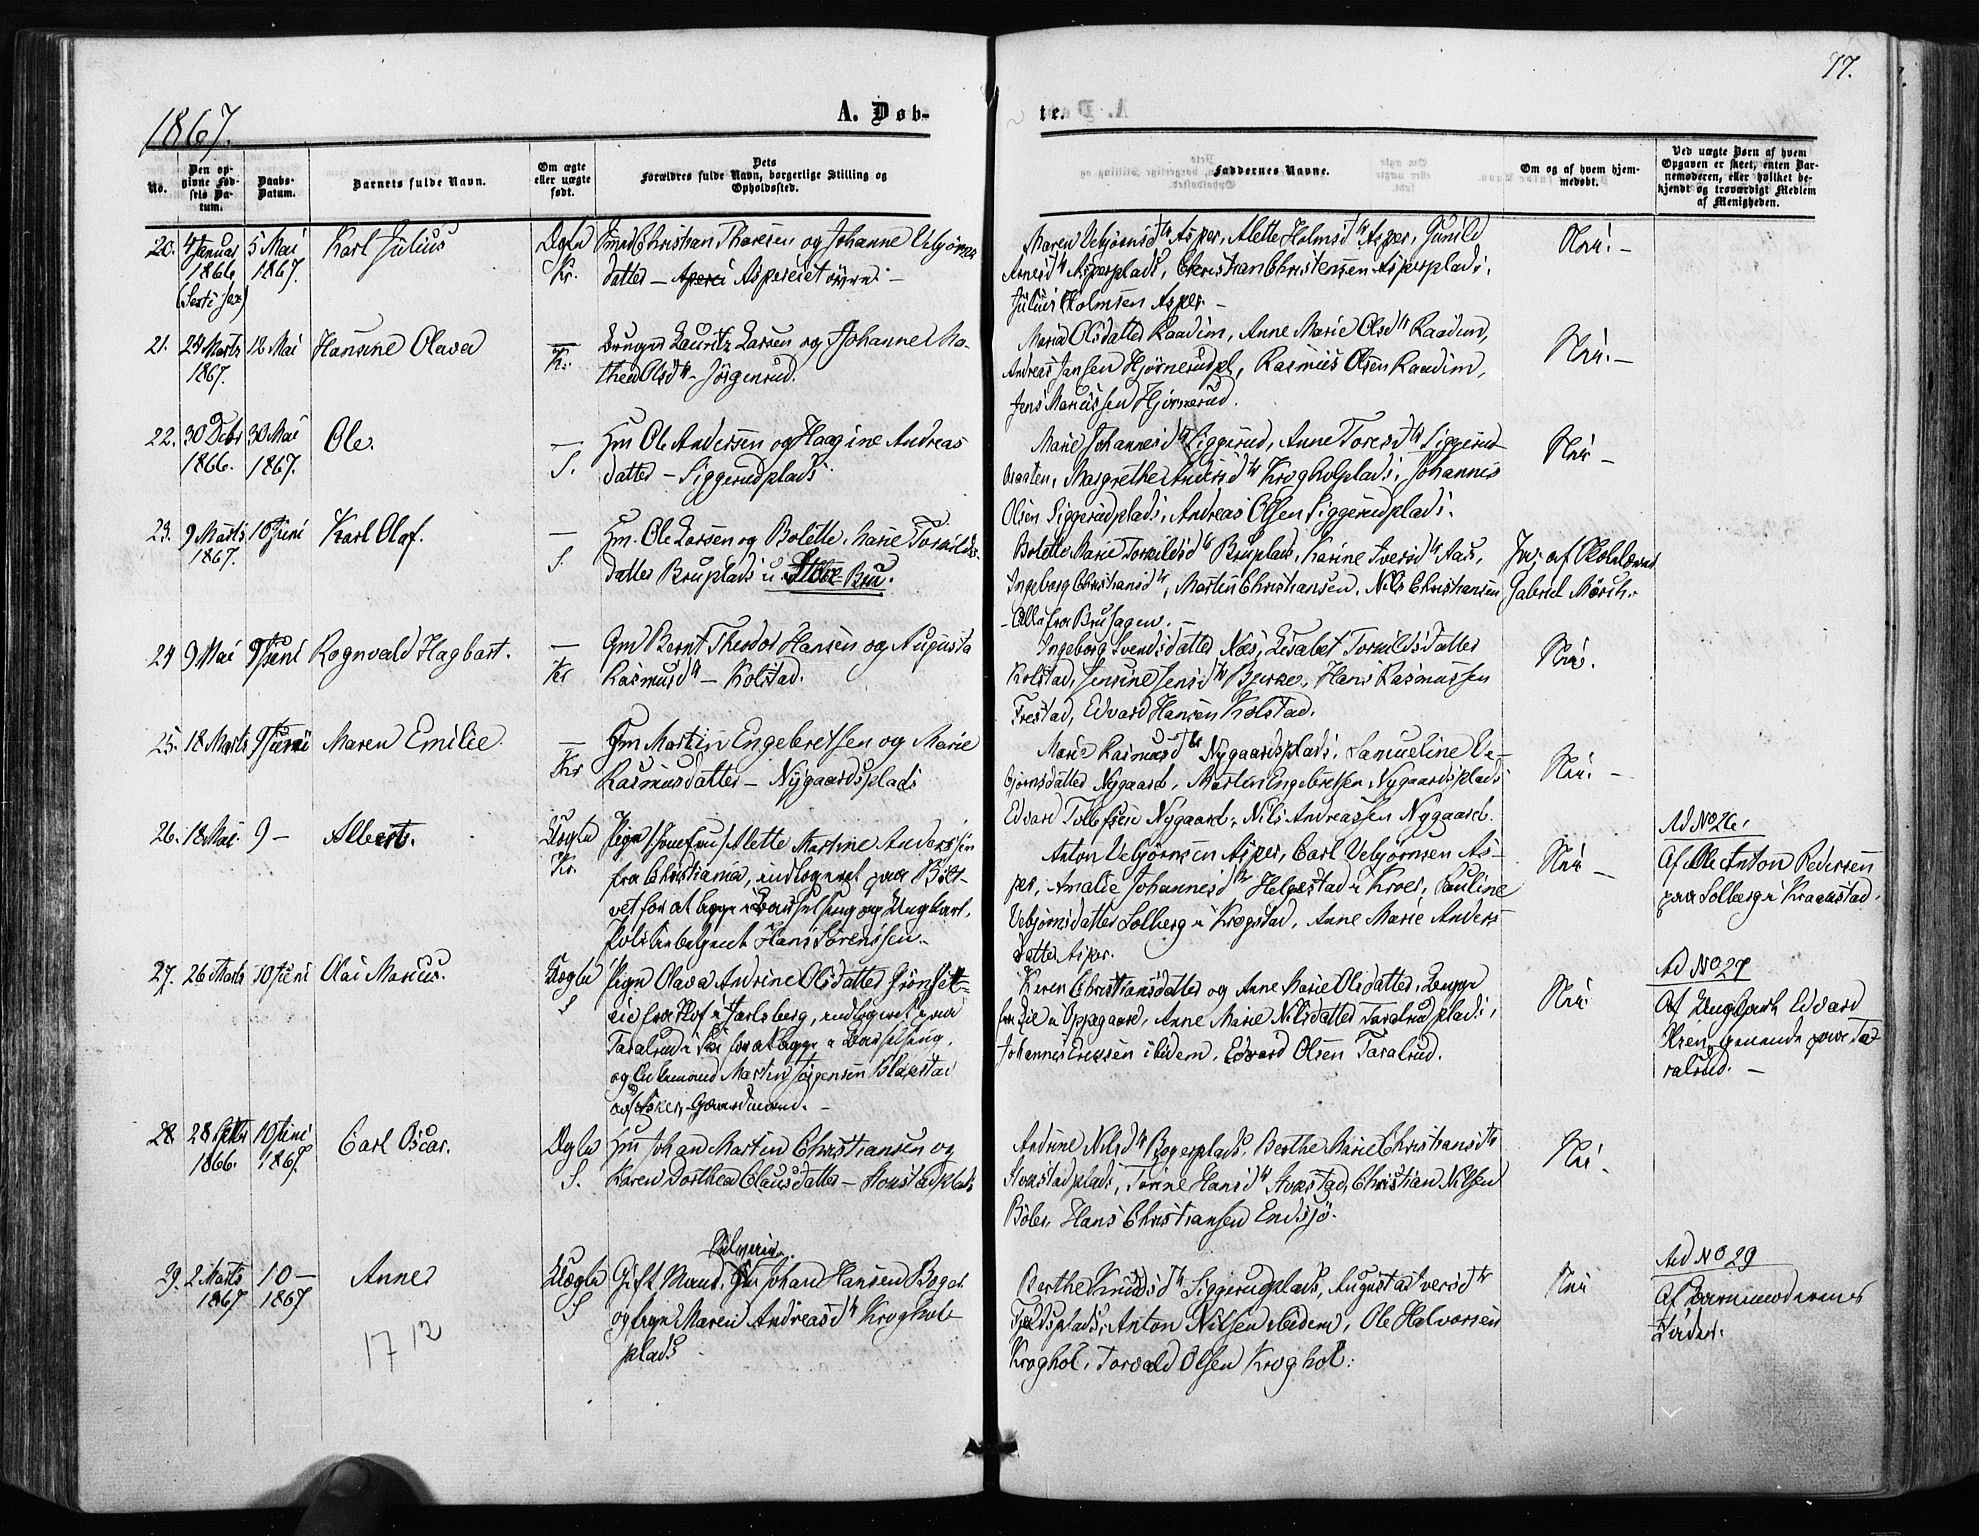 77.
1867.
A. Døb-
te.
No.
Den op-
givne Fød-
sels Da-
tum.
Daabs-
Datum.
Barnets fulde Navn.
Om ægte
eller uægte
født.
Dets
Forældres fulde Navn, borgerlige Stilling og
Opholdssted.
Faddernes Navne.
Om og af hvem hjem-
medøbt.
Ved uægte Børn af hvem
Opgaven er skeet, enten Bar-
nemoderen, eller hvilket be-
kjendt og troværdigt Medlem
af Menigheden.
20. 4 Januar 5 Mai Karl Julius Ægte Christian Thoresen og Johanne Vebjørns
1866 1867. Kr. datter — Aspereiet
Maren Vebjørnsdtr Asper, Alette Holmsdtr Asper, Gunild
Arnesdtr Asperplads, Christian Christensen Asperplads,
Julius Holmsen Asper. —
Nei. —
21. 24 Marts 12 Mai Hansine Olava — Lauritz Larsen og Johanne Ma-
1867. Kr. thea Olsdtr — Jörgenrud.
Maria Olsdatter Raadim, Anne Marie Olsdtr Raadim,
Andreas Jansen Hjørnerudpl, Rasmus Olsen Raadim,
Jens Mariussen Hjörnerud.
Nei. —
22. 30 Debr 30 Mai Ole. — Hm Ole Anderssen og Haagine Andreas
1866. 1867. S. datter — Siggerudplads
Marie Johannesdtr Siggerud, Anne Toresdtr Siggerud
Braaten, Margrethe Andersdtr Krogholplads, Johannes
Olsen Siggerudplads, Andreas Olsen Siggerudplads.
Nei —
23. 9 Marts 10 Juni Karl Olaf. — Hm. Ole Larsen og Bolette Marie Torkilds-
1867. S. datter Bruplads u. Bru.
Bolette Marie Torkildsdtr Bruplads, Karine Iversdtr Aas,
Ingeborg Christiansdtr, Martin Christiansen, Nils Christiansen
— Alle fra Bruhagen. —
Ja, af Skolelærer
Gabriel Mörch.
24 9 Mai 9 Juni Rognvald Hagbart. — Gm Bernt Theodor Hansen og Augusta
Kr Rasmusdtr — Kolstad.
Ingeborg Svendsdatter Næs, Lisabet Torkildsdatter
Kolstad, Jensine Jensdtr Bjerke, Hans Rasmussen
Frestad, Edvard Hansen Kolstad.
Nei.
25. 18 Marts 9 Juni Maren Emilie. — Hm Martin Engebretsen og Marie
Kr Rasmusdatter — Nygaardsplads
Marie Rasmusdtr Nygaardsplads, Samueline Ve-
bjørnsdatter Nygaard, Martin Engebretsen Nygaardsplads
Edvard Tollefsen Nygaard, Nils Andreassen Nygaard.
Nei. —
26. 18 Mai 9 — Albert. Uægte Pige /Jomfru/ Alette Martine Anderssen
Kr. fra Christiania, indlogeret paa Böl-
vet for at ligge i Barselseng og Ungkarl,
Hans Sörenssen.
Anton Vebjørnsen Asper, Carl Vebjørnsen As-
per, Amalie Johannesdtr Helgestad i Kroer, Pauline
Vebjørnsdatter Solberg i Krogstad, Anne Marie Anders-
datter Asper.
Nei —
Ad No 26.
Af Ole Anton Pedersen
paa Solberg i Kraakstad.
27. 26 Marts 10 Juni Olai Marius. Uægte Pige Olava Andrine Olsdatter Grönset-
S eie fra Hof i Jarlsberg, indlogeret paa
Taralrud i Ski for at ligge i Barselseng,
og Enkemand Martin Jörgensen Blakstad
ad Asker, Gaardmand. —
Karen Christiansdatter og Anne Marie Olsdatter, begge
fra Lie i Oppegaard, Anne Marie Nilsdatter Taralrudplads,
Johannes Eriksen ibidem, Edvard Olsen Taralrud.
Nei
Ad No 27
Af Ungkarl Edvard
tjenende paa Ta-
ralrud. —
28 28 Septbr 10 Juni Carl Oscar. Ægte Hm Johan Martin Christiansen og
1866. 1867. S. Karen Dorthea Clausdatter — Stokstadplads
Andrine Nilsdtr Bogerplads, Berthe Marie Christiansdtr
Stokstadplads, Torine Hansdtr Stokstad, Christian Nilsen
Böler, Hans Christiansen Endsjö.
Nei.
29. 2 Marts 10 — Anne Uægte Gift Mand, Johan Hansen Boger
1867 1867 S og Pige Maren Andreasdtr Kroghol-
plads —
Berthe Knudsdtr Siggerudplads, Augusta Iversdtr
Fjeldsplads, Anton Nilsen ibidem, Ole Halvorsen
Kroghol, Torvald Olsen Kroghol.
Nei
Ad No 29
Af Barnemoderens
Fader.
17 12